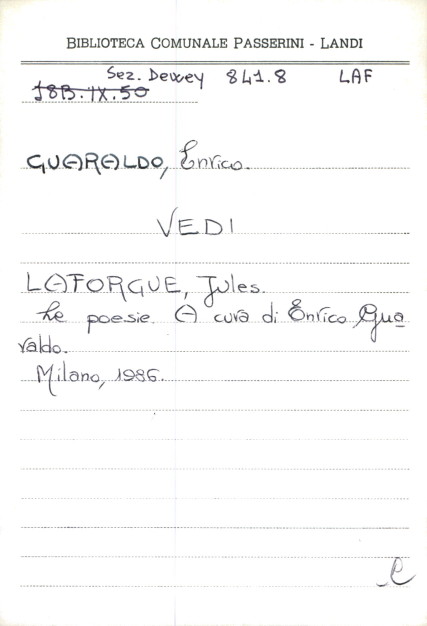 BIBLIOTECA COMUNALE PASSERINI - LANDI
Sez. Dewey 841.8 LAF
J8B.IX.50
GUARALDO, Enrico.
VEDI
LAFORGUE, Jules.
Le poesie. A cura di Enrico Gua
raldo.
Milano, 1986.